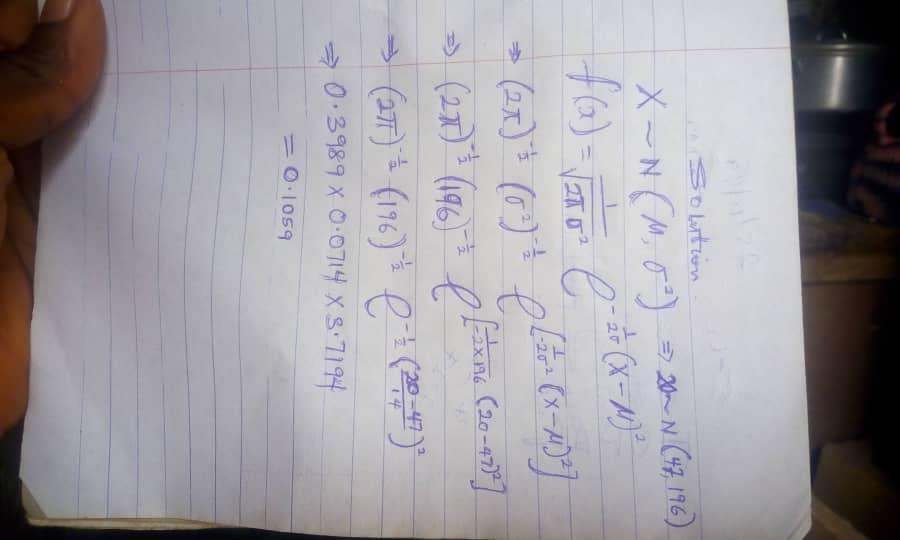 Solution.
X ~ N(μ, σ²) ⇒ 20 ~ N(47, 196)
f(x) = 1/√2πσ² e^-1/2σ (X-μ)²
⇒ (2π)^-½ (σ²)^-½ e^[-1/2σ² (X-μ)²]
⇒ (2π)^-½ (196)^-½ e^[1/-2×196 (20-47)²]
⇒ (2π)^-½ (196)^-½ e^-½ (20-47/14)²
⇒ 0.3989 × 0.0714 × 3.7194
= 0.1059